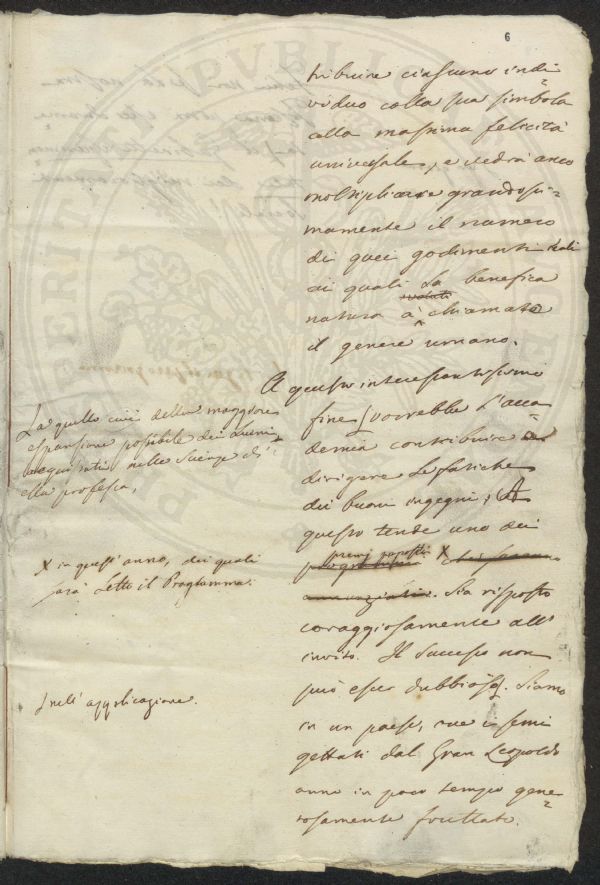 6
tribuire ciascuno indi=
viduo colla sua simbola
alla massima felicità
universale, e vedrà anco
moltiplicare grandissi=
mamente il numero
di quei godimenti reali
ai quali la benefica
natura à chiamato
il genere umano.
A questo interessantissimo
fine vorrebbe l'acca=
demia contribuire
dirigere le fatiche
dei buoni ingegni, A
questo tende uno dei
premj proposti X
. Sia risposto
coraggiosamente all'
invito. Il successo non
può esser dubbioso. Siamo
in un paese, ove i semi
gettati dal Gran Leopoldo
anno in poco tempo gene=
rosamente fruttato.
La quello cioè della maggiore
espansione possibile dei Lumi
acquistati nelle Scienze di
ella professa,
X in quest'anno, dei quali
sarà Letto il Programma.
nell'applicazione